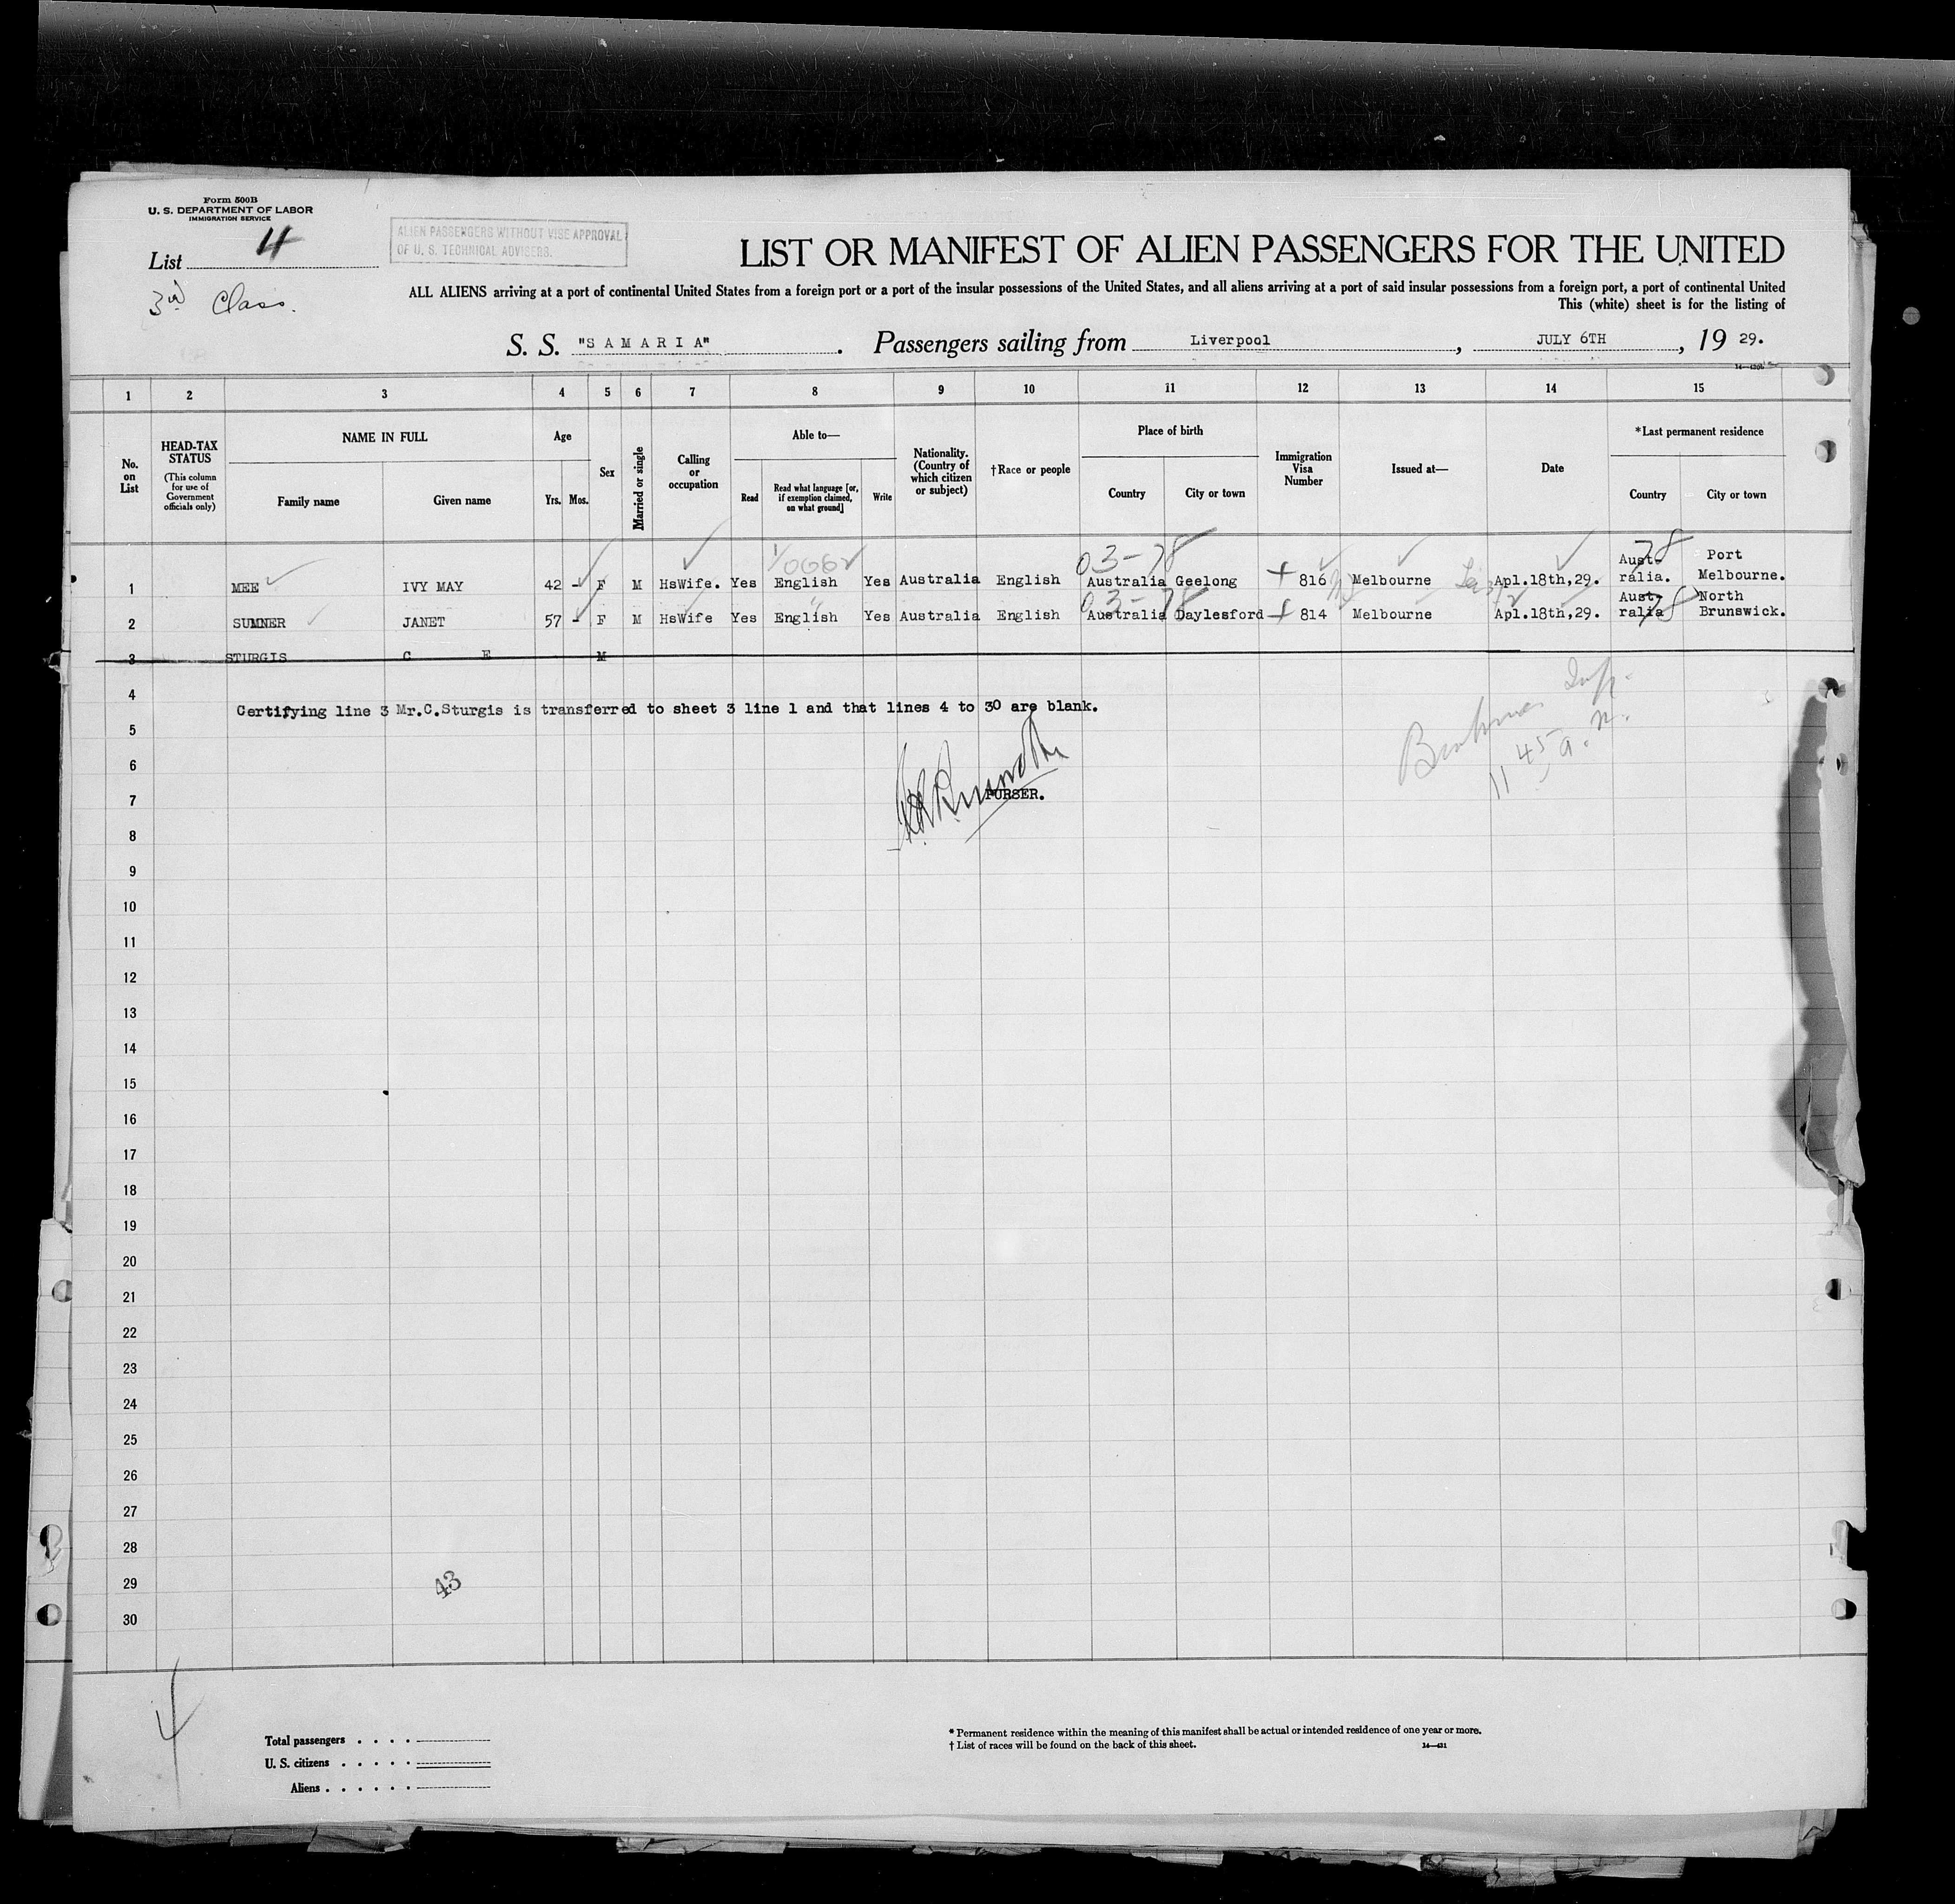 Form 500B
U. S. DEPARTMENT OF LABOR
IMMIGRATION SERVICE
List 4
3rd Class.
ALIEN PASSENGERS WITHOUT VISE APPROVAL
OF U. S. TECHNICAL ADVISERS.
LIST OR MANIFEST OF ALIEN PASSENGERS FOR THE UNITED
ALL ALIENS arriving at a port of continental United States from a foreign port or a port of the insular possessions of the United States, and all aliens arriving at a port of said insular possessions from a foreign port, a port of continental United
This (white) sheet is for the listing of
S. S. "S A M A R I A" . Passengers sailing from Liverpool , JULY 6TH , 19 29.
1 2 3 4 5 6 7 8 9 10 11 12 13 14 15
No. on List
HEAD-TAX STATUS
(This column for use of Government officials only)
NAME IN FULL
Family name Given name
Age
Yrs. Mos.
Sex
Married or single
Calling or occupation
Able to—
Read
Read what language [or, if exemption claimed, on what ground]
Write
Nationality. (Country of which citizen or subject)
†Race or people
Place of birth
Country City or town
Immigration Visa Number
Issued at—
Date
*Last permanent residence
Country City or town
03-78 78
1 MEE IVY MAY 42 - F M HsWife. Yes English Yes Australia English Australia Geelong 816 Melbourne Apl.18th,29. Aust- ralia. Port Melbourne.
03-78 78
2 SUMNER JANET 57 - F M HsWife Yes English Yes Australia English Australia Daylesford 814 Melbourne Apl.18th,29. Aust- ralia North Brunswick.
3 STURGIS C E M
4
Certifying line 3 Mr.C.Sturgis is transferred to sheet 3 line 1 and that lines 4 to 30 are blank.
5
6
7 PURSER.
11 45 a.m.
8
9
10
11
12
13
14
15
16
17
18
19
20
21
22
23
24
25
26
27
28
29
43
30
4
Total passengers . . . .
U. S. citizens . . . . .
Aliens . . . . . .
* Permanent residence within the meaning of this manifest shall be actual or intended residence of one year or more.
† List of races will be found on the back of this sheet. 14—431